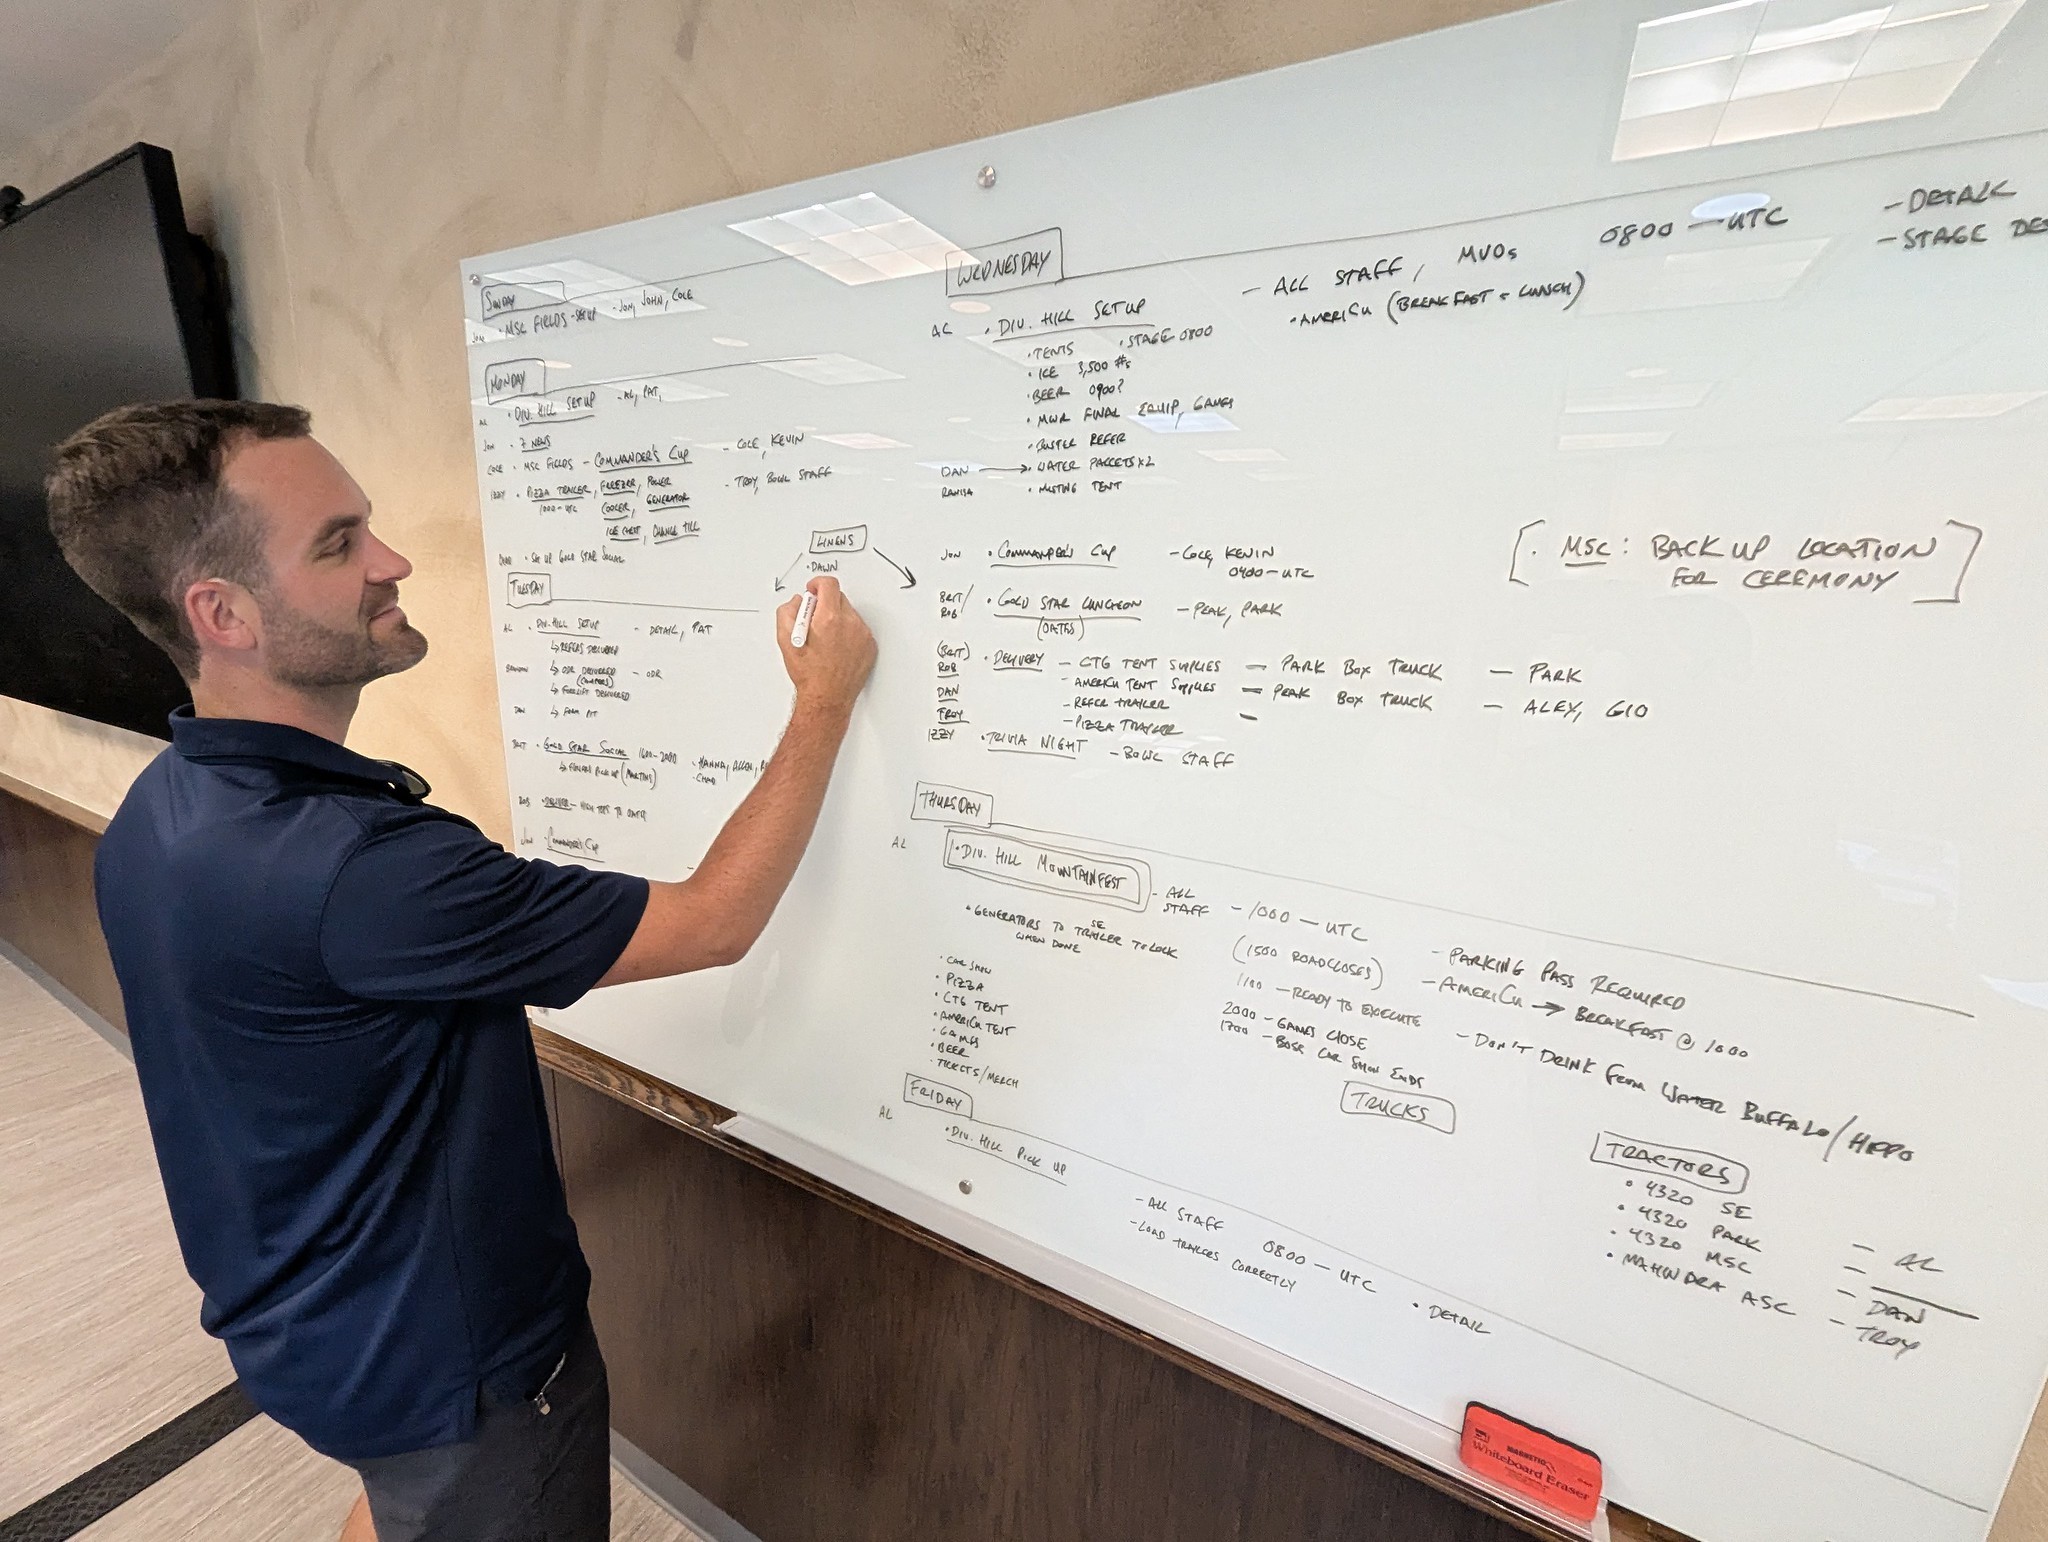 SUNDAY
JON • MSC FIELDS - SET UP - JON, JOHN, COLE
MONDAY
AL • DIV. HILL SETUP - AL, PAT,
JON • 7 NEWS
COLE • MSC FIELDS - COMMANDER'S CUP - COLE, KEVIN
IZZY • PIZZA TRAILER, FREEZER, POWER - TROY, BOWL STAFF
1000-UTC COOLER, GENERATOR
ICE CHEST, CHANGE TILL
• SET UP GOLD STAR SOCIAL
TUESDAY
AL • DIV. HILL SETUP - DETAIL, PAT
↳ REFERS DELIVERED
↳ ODR DELIVERED - ODR
(CAMPERS)
↳ FORKLIFT DELIVERED
DAN ↳ FOAM PIT
BRIT • GOLD STAR SOCIAL 1600-2000 - HANNA, ALLEN,
↳ PICK UP (MARTINS) • CHAD
ROB • DELIVER - HIGH TOPS TO
JON - COMMANDER'S CUP
LINENS
• DAWN
WEDNESDAY
AL • DIV. HILL SETUP
- ALL STAFF, MVOs 0800 - UTC - DETAIL
• AMERICU (BREAKFAST + LUNCH) - STAGE DE
• TENTS • STAGE 0800
• ICE 3,500 #s
• BEER 0900?
• MWR FINAL EQUIP, GAMES
• BUSTER REFER
DAN → • WATER PALLETS x2
• MISTING TENT
JON • COMMANDER'S CUP - COLE, KEVIN
0400-UTC
BRIT/ROB • GOLD STAR LUNCHEON - PEAK, PARK
(OATES)
(BRIT)
ROB • DELIVERY - CTG TENT SUPPLIES - PARK BOX TRUCK - PARK
DAN - AMERICU TENT SUPPLIES - PEAK BOX TRUCK - ALEX, GIO
- REFER TRAILER -
TROY - PIZZA TRAILER
IZZY • TRIVIA NIGHT - BOWL STAFF
[• MSC: BACK UP LOCATION
FOR CEREMONY]
THURSDAY
AL • DIV. HILL MOUNTAINFEST - ALL STAFF - 1000 - UTC
• GENERATORS TO SE TRAILER TO LOCK
WHEN DONE
• CAR SHOW
• PIZZA
• CTG TENT
• AMERICU TENT
• GAMES
• BEER
• TICKETS/MERCH
(1500 ROAD CLOSES)
1100 - READY TO EXECUTE
2000 - GAMES CLOSE
1700 - BOSS CAR SHOW ENDS
- PARKING PASS REQUIRED
- AMERICU → BREAKFAST @ 1000
- DON'T DRINK FROM WATER BUFFALO/HIPPO
FRIDAY
AL • DIV. HILL PICK UP
- ALL STAFF 0800 - UTC • DETAIL
- LOAD TRAILERS CORRECTLY
TRUCKS
TRACTORS
• 4320 SE - AL
• 4320 PARK -
• 4320 MSC - DAN
• MAHINDRA ASC - TROY
MAGNETIC
Whiteboard Eraser